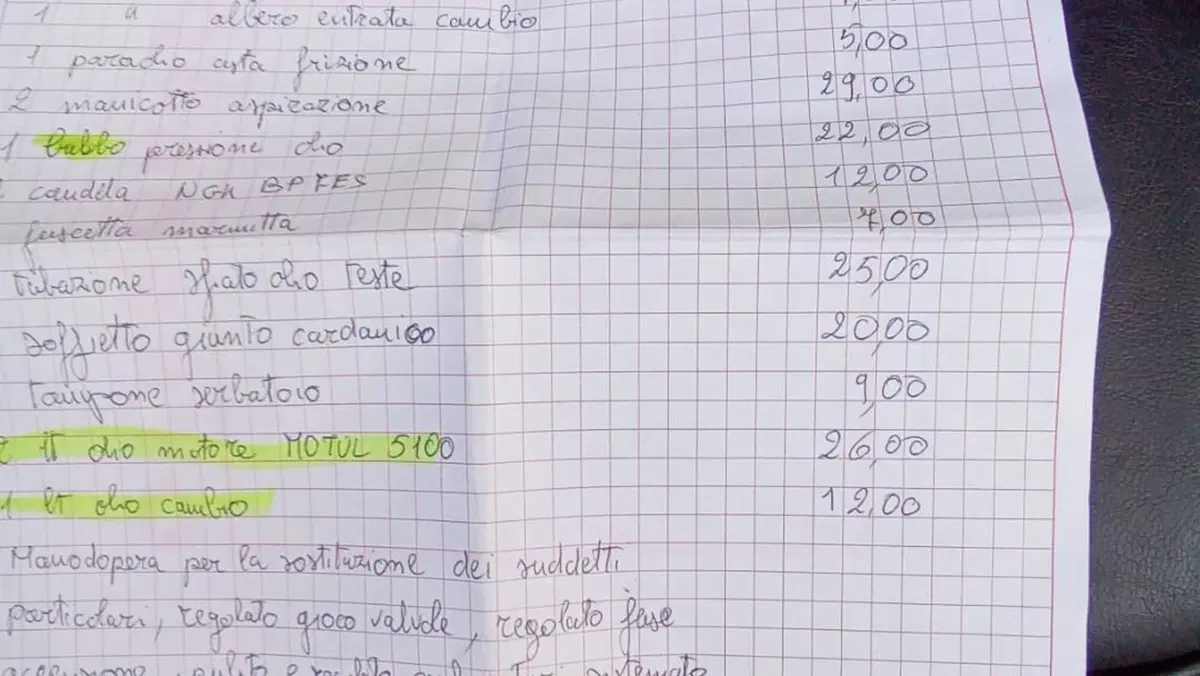 1 " albero entrata cambio
1 paraolio asta frizione 5,00
2 manicotto aspirazione 29,00
1 bulbo pressione olio 22,00
candela NGK BP7ES 12,00
fascetta marmitta 7,00
tubazione sfiato olio teste 25,00
soffietto giunto cardanico 20,00
tampone serbatoio 9,00
2 lt olio motore MOTUL 5100 26,00
1 lt olio cambio 12,00
Manodopera per la sostituzione dei suddetti
particolari, regolato gioco valvole, regolato fase